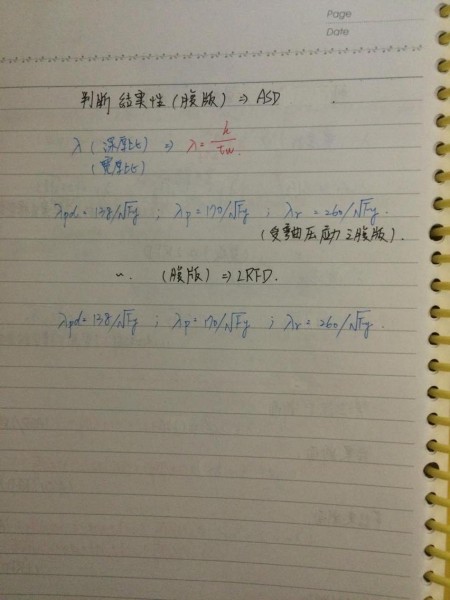 Page
Date
判斷 結實性 (腹版) ⇒ ASD
λ (深厚比) ⇒ λ = h/tw
(寬厚比)
λpd = 138/√Fy ; λp = 170/√Fy ; λr = 260/√Fy.
(受彎曲压應力之腹版).
〃 (腹版) ⇒ LRFD.
λpd = 138/√Fy ; λp = 170/√Fy ; λr = 260/√Fy.